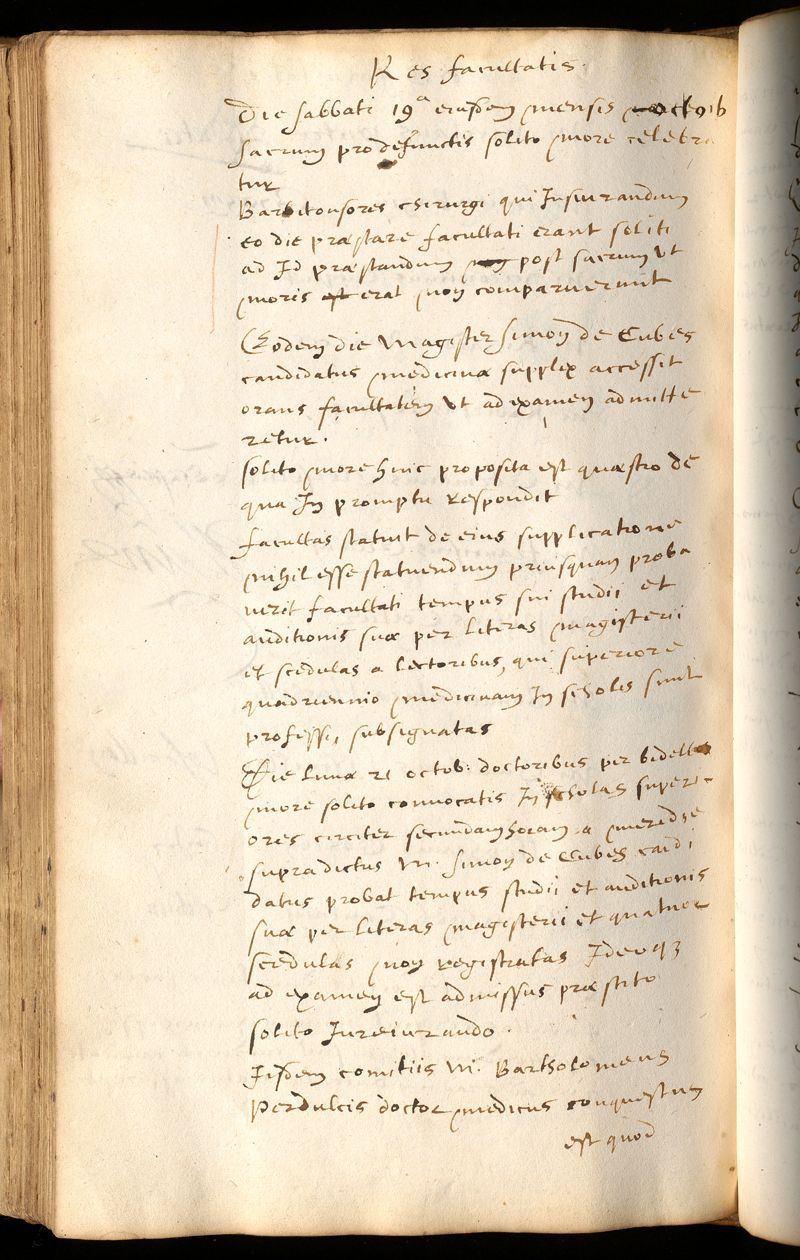 Res facultatis.
Die sabbati 19a eiusdem mensis octob
sacrum pro defunctis solito more celebra
tur
Barbitonsores chirurgi qui Jusiurandum
eo die præstare facultati erant soliti
ad Id præstandum post sacrum Vt
moris est erat non comparuerunt
Eodem die Magister Simon de Cubes
candidatus medicinæ supplex accessit
orans facultatem Vt ad examen admitte
retur.
solito more huic proposita est quæstio de
qua In promptu respondit
facultas statuit de eius supplicatione
nihil esse statuendum priusquam proba
uerit facultati tempus sui studii et
auditionis suæ per literas magisterii
et scedulas a lectoribus, qui superiore
quadriennio medicinam In scholis sunt
professi, subsignatas
Die lunæ 21 octob: doctoribus per bidellum
more solito conuocatis In scholas superi-
ores circiter secundam horam a meridie
supradictus M. Simon de Cubes candi
datus probat tempus studii et auditionis
suæ per literas magisterii et quatuor
scedulas non registratas Ideoq3
ad examen est admissus præstito
solito Iureiurando.
Iisdem comitiis M. Bartholomeus
Perdulcis doctor medicus conquestus
est quod